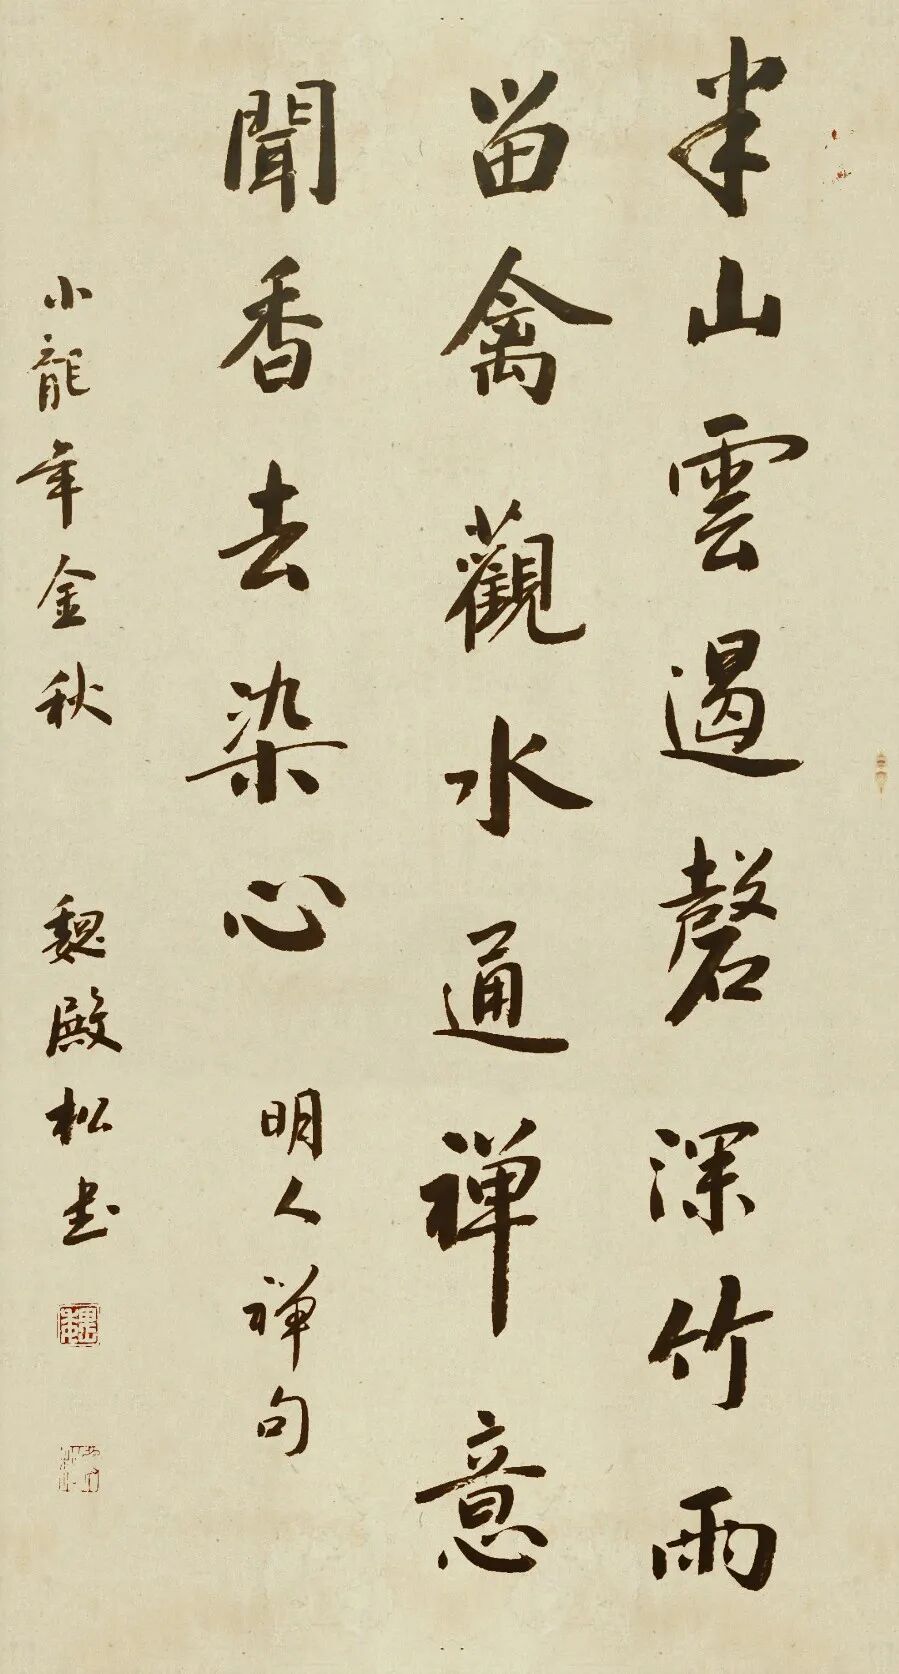 半山雲遏磬深竹雨
留禽觀水通禪意
聞香去染心 明人禅句
小龍年金秋 魏殿松书
魏